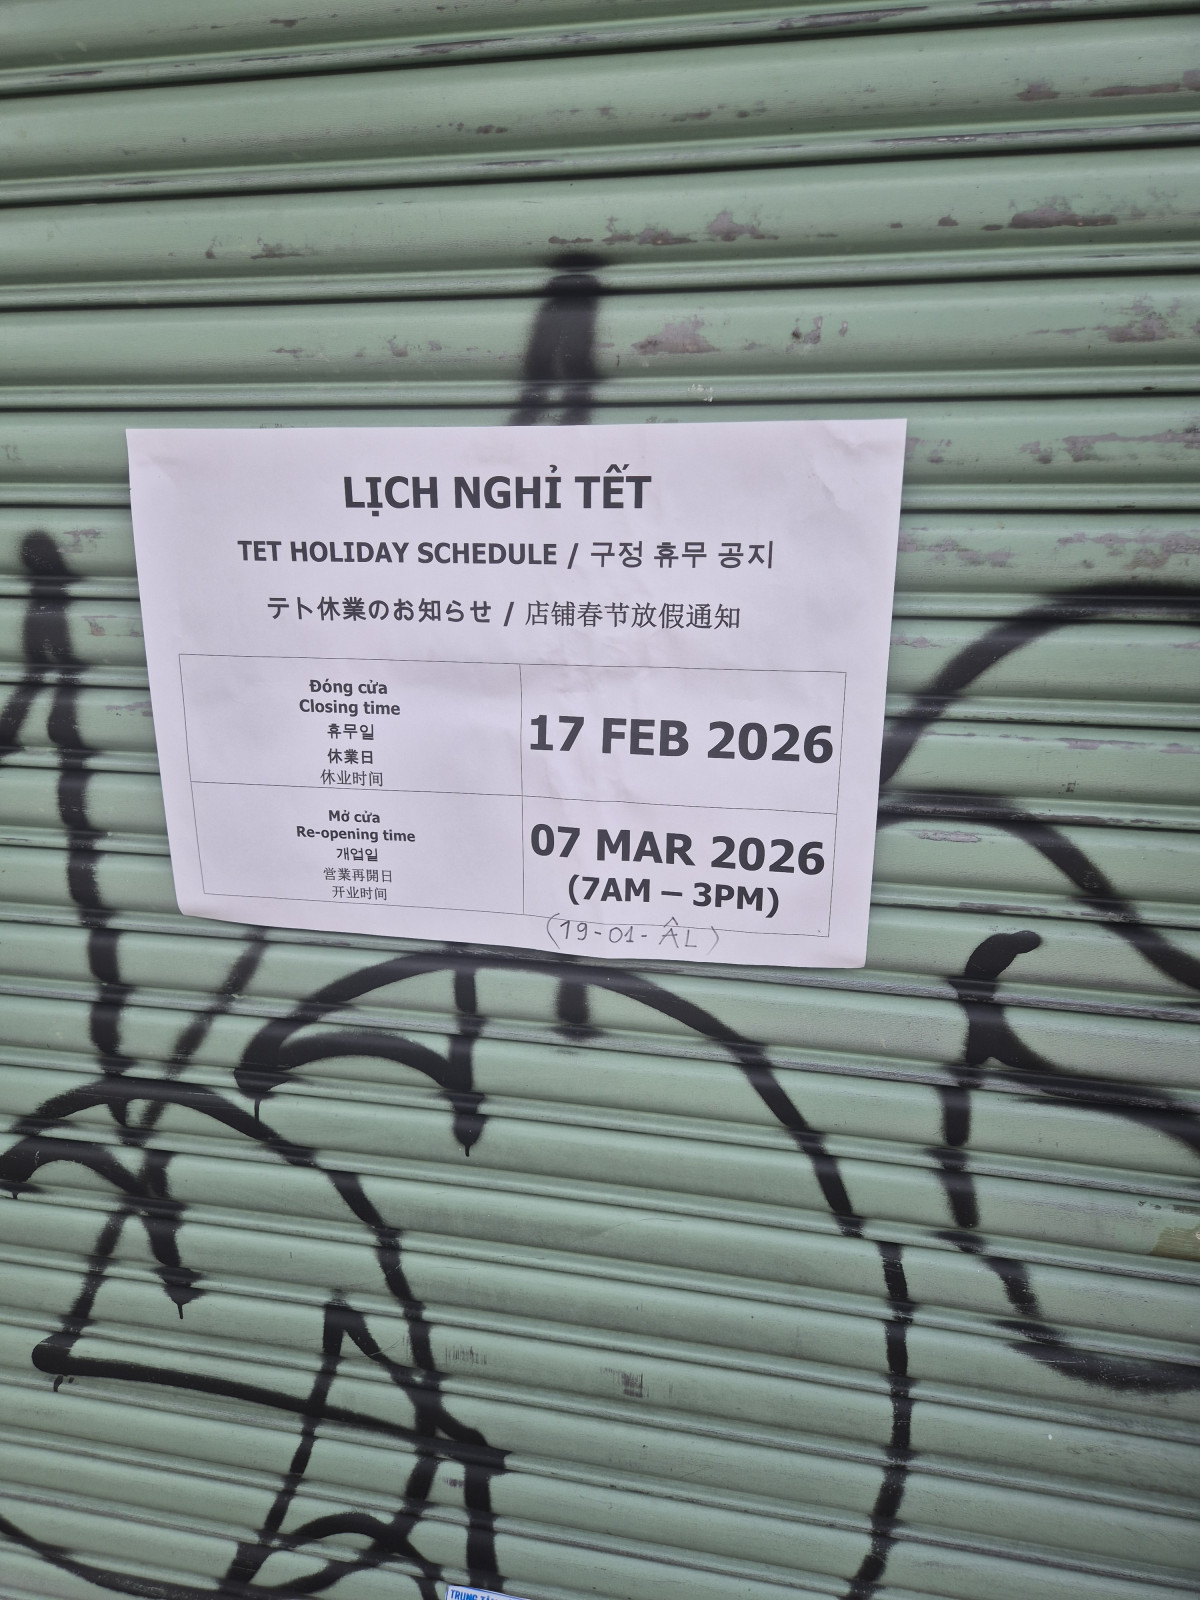 LỊCH NGHỈ TẾT
TET HOLIDAY SCHEDULE / 구정 휴무 공지
テト休業のお知らせ / 店铺春节放假通知
Đóng cửa
Closing time
휴무일
休業日
休业时间
17 FEB 2026
Mở cửa
Re-opening time
개업일
営業再開日
开业时间
07 MAR 2026
(7AM – 3PM)
(19-01-ÂL)
TRUNG TÂM